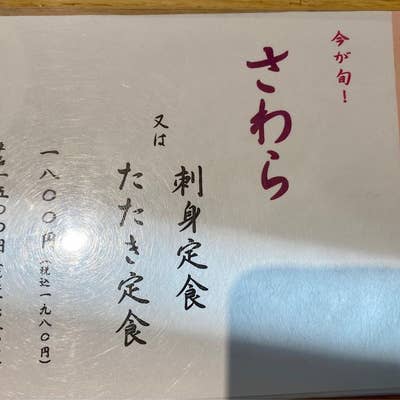 今が旬！
さわら
刺身定食
又は
たたき定食
一八〇〇円（税込一九八〇円）
一五〇〇円